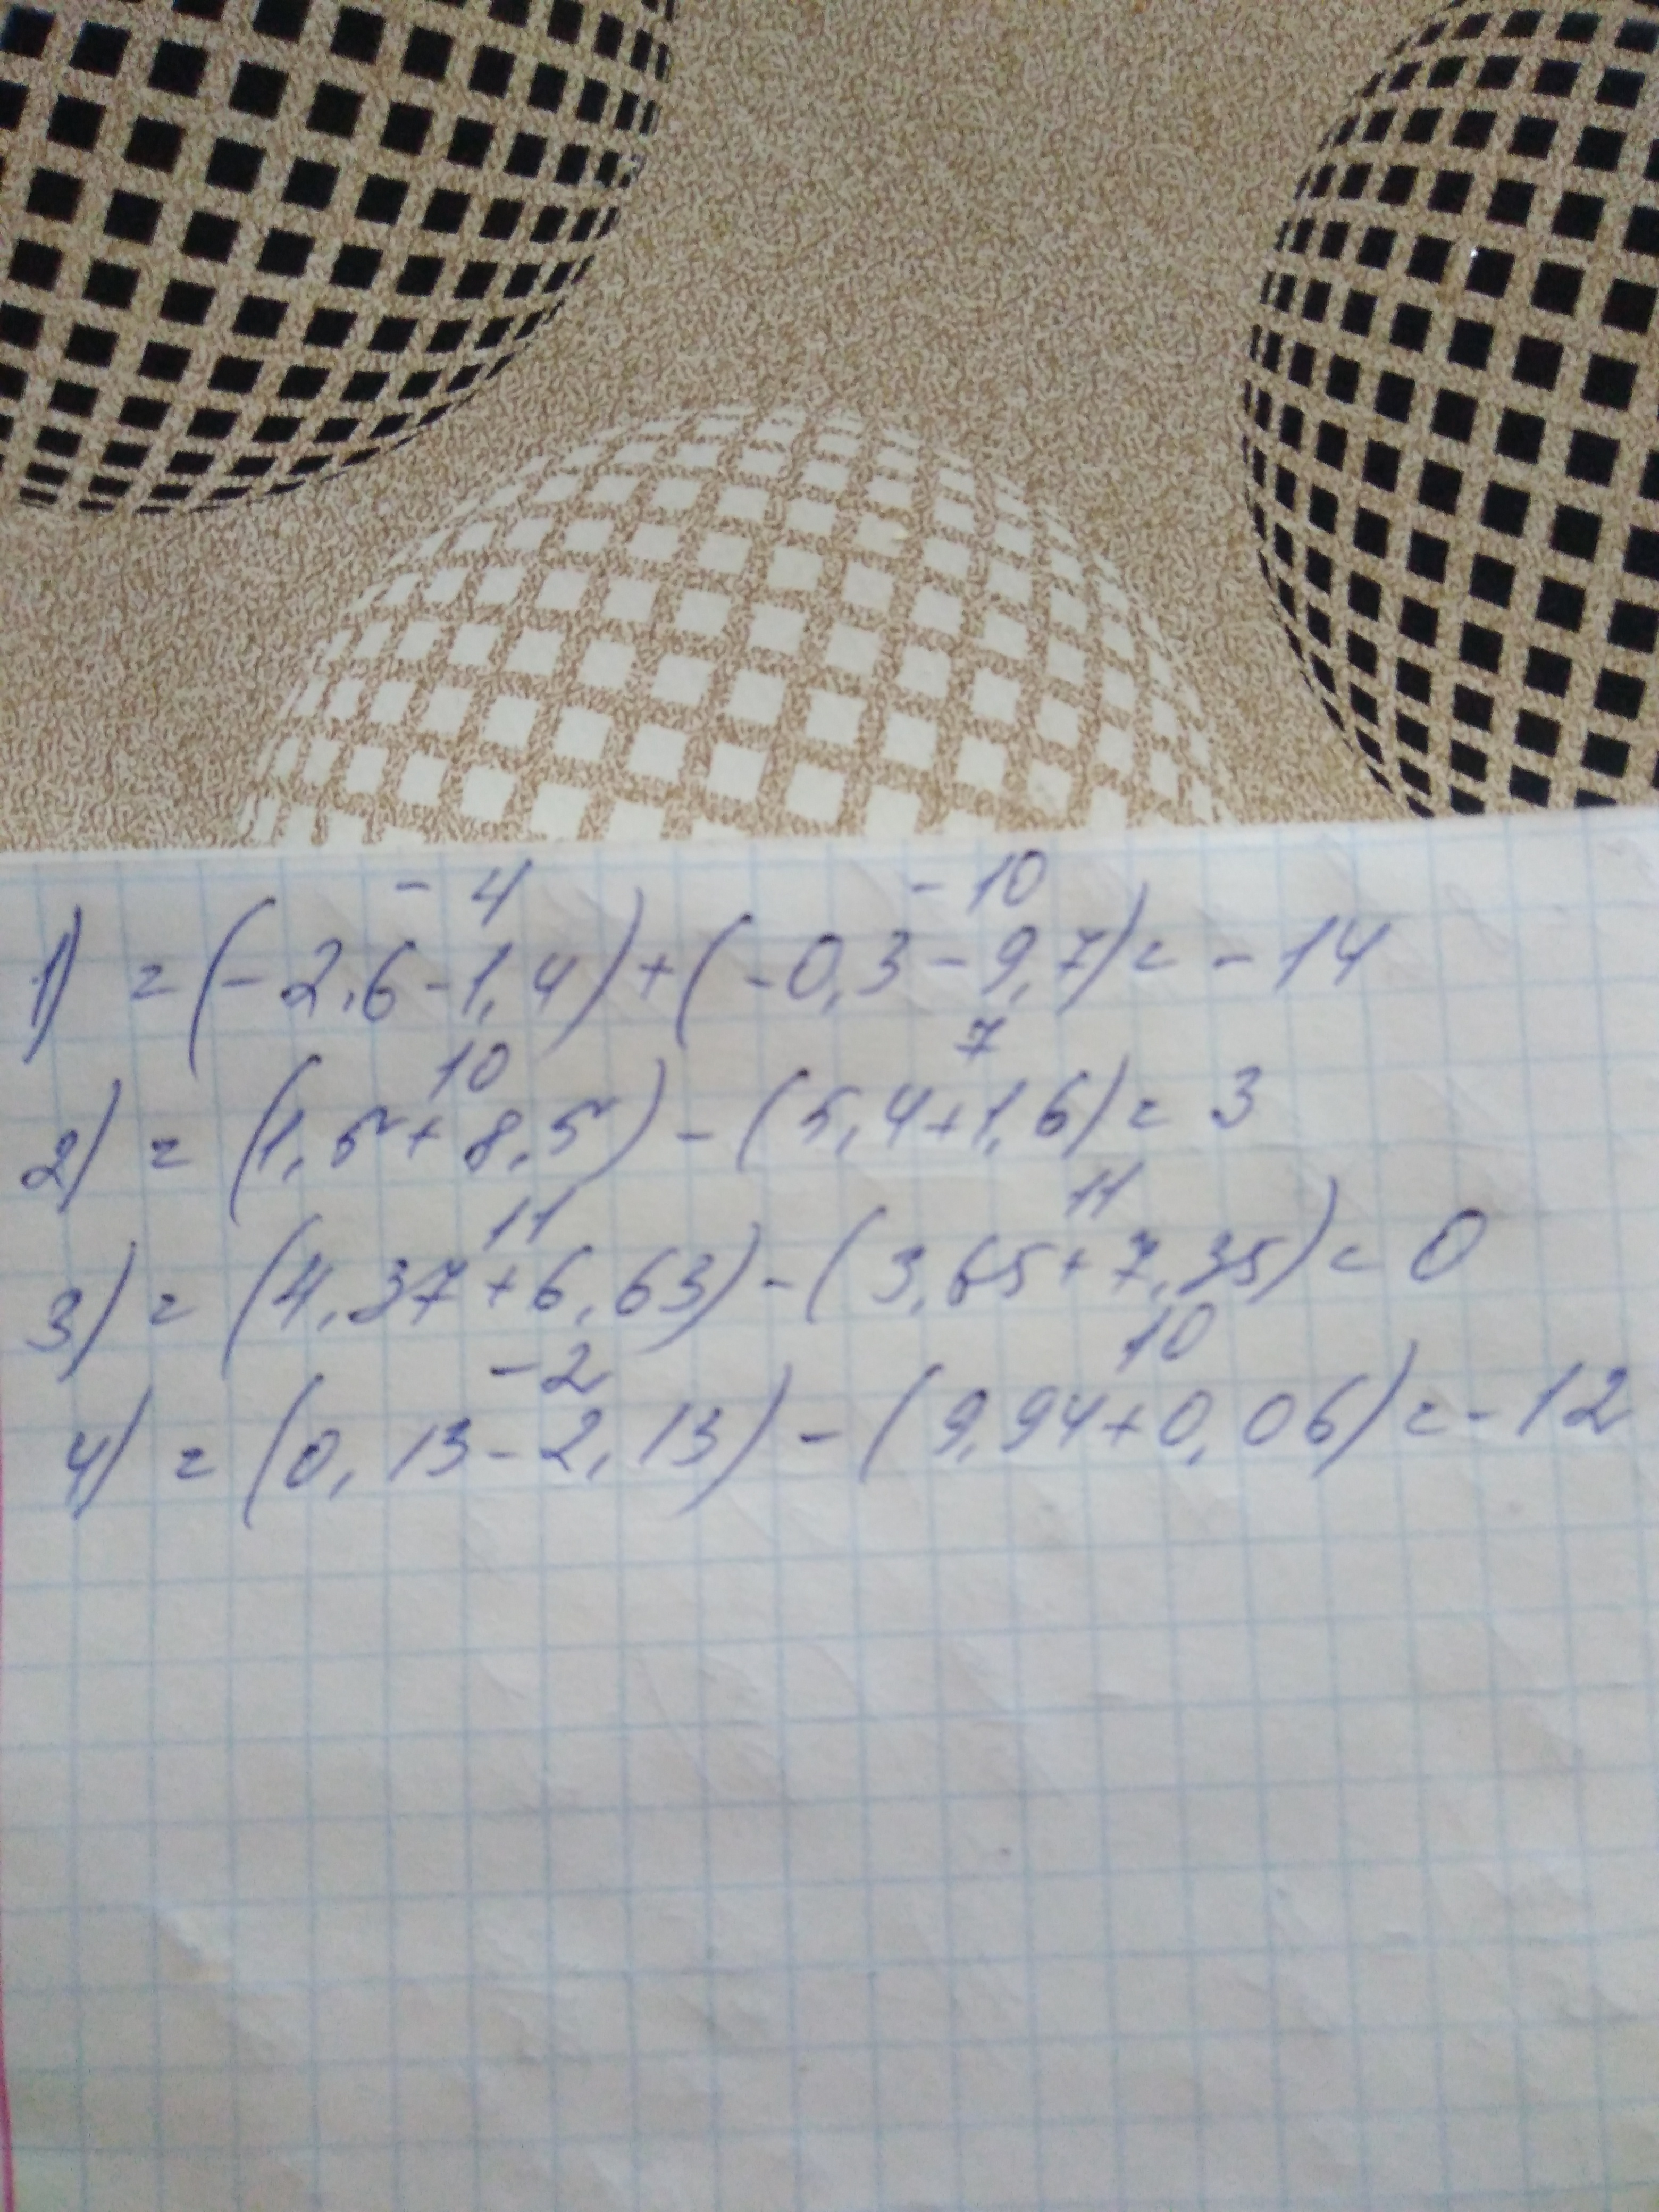 - 4 - 10
1) = (- 2,6 - 1,4) + (- 0,3 - 9,7) = - 14
10 7
2) = (1,5 + 8,5) - (5,4 + 1,6) = 3
11 11
3) = (4,37 + 6,63) - (3,65 + 7,35) = 0
- 2 10
4) = (0,13 - 2,13) - (9,94 + 0,06) = - 12